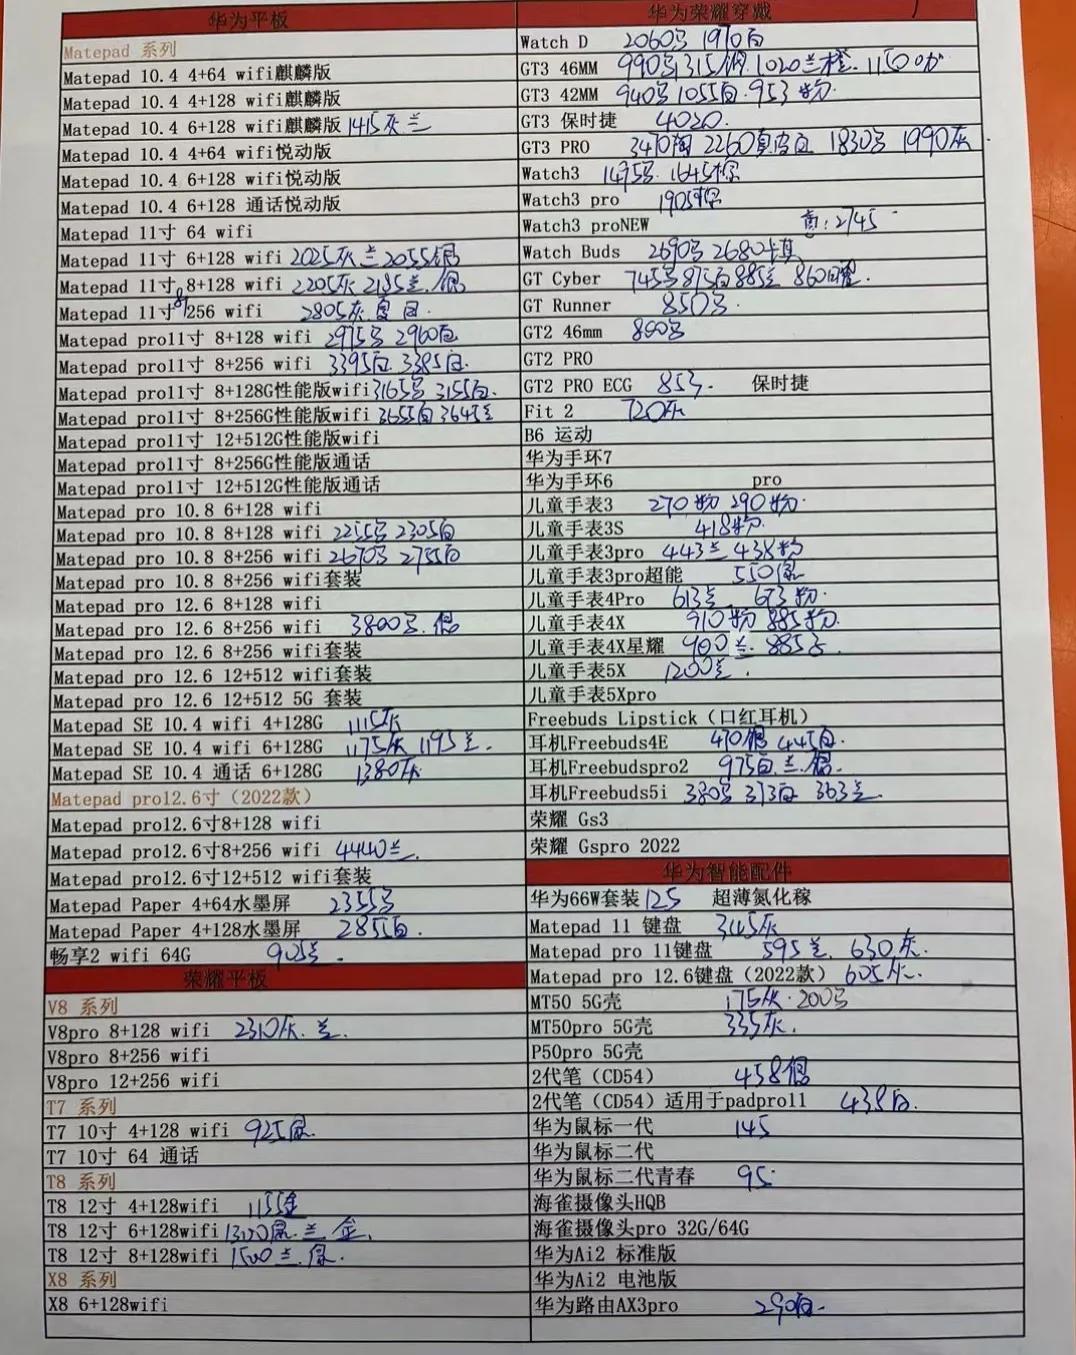 华为平板
Matepad 系列
Matepad 10.4 4+64 wifi麒麟版
Matepad 10.4 4+128 wifi麒麟版
Matepad 10.4 6+128 wifi麒麟版 1415灰 兰
Matepad 10.4 4+64 wifi悦动版
Matepad 10.4 6+128 wifi悦动版
Matepad 10.4 6+128 通话悦动版
Matepad 11寸 64 wifi
Matepad 11寸 6+128 wifi 2025灰 兰 2055银
Matepad 11寸 8+128 wifi 2205灰 2185兰. 银
Matepad 11寸 8/256 wifi 2805灰
Matepad pro11寸 8+128 wifi 2975 2960白
Matepad pro11寸 8+256 wifi 3395白 3385白.
Matepad pro11寸 8+128G性能版wifi 3165 3155白.
Matepad pro11寸 8+256G性能版wifi 3655白 3645兰
Matepad pro11寸 12+512G性能版wifi
Matepad pro11寸 8+256G性能版通话
Matepad pro11寸 12+512G性能版通话
Matepad pro 10.8 6+128 wifi
Matepad pro 10.8 8+128 wifi 2255 2305白
Matepad pro 10.8 8+256 wifi 2670 2755白
Matepad pro 10.8 8+256 wifi套装
Matepad pro 12.6 8+128 wifi
Matepad pro 12.6 8+256 wifi 3800 银
Matepad pro 12.6 8+256 wifi套装
Matepad pro 12.6 12+512 wifi套装
Matepad pro 12.6 12+512 5G 套装
Matepad SE 10.4 wifi 4+128G 1115灰
Matepad SE 10.4 wifi 6+128G 1175灰 1195兰.
Matepad SE 10.4 通话 6+128G 1380灰
Matepad pro12.6寸（2022款）
Matepad pro12.6寸8+128 wifi
Matepad pro12.6寸8+256 wifi 4440兰.
Matepad pro12.6寸12+512 wifi套装
Matepad Paper 4+64水墨屏 2355
Matepad Paper 4+128水墨屏 2855白.
畅享2 wifi 64G 905兰.
荣耀平板
V8 系列
V8pro 8+128 wifi 2310灰. 兰.
V8pro 8+256 wifi
V8pro 12+256 wifi
T7 系列
T7 10寸 4+128 wifi 925
T7 10寸 64 通话
T8 系列
T8 12寸 4+128wifi 1155金
T8 12寸 6+128wifi 兰 金.
T8 12寸 8+128wifi 1500兰.
X8 系列
X8 6+128wifi
华为荣耀穿戴
Watch D 2060 1970白
GT3 46MM 990 1315钢 1020兰橙. 1150
GT3 42MM 940 1055白. 953粉.
GT3 保时捷 4020.
GT3 PRO 3470陶 2260真皮 1830 1990灰
Watch3 1495 1645棕
Watch3 pro 1905棕
Watch3 proNEW 2745
Watch Buds 2690 2680
GT Cyber 745 875白 885兰 860曜.
GT Runner 850
GT2 46mm 800
GT2 PRO
GT2 PRO ECG 853. 保时捷
Fit 2 720灰
B6 运动
华为手环7
华为手环6 pro
儿童手表3 270粉 290粉.
儿童手表3S 418粉.
儿童手表3pro 443兰 438粉
儿童手表3pro超能 550银
儿童手表4Pro 613兰 673粉.
儿童手表4X 910粉 885粉.
儿童手表4X星耀 900兰. 885
儿童手表5X 1200兰.
儿童手表5Xpro
Freebuds Lipstick（口红耳机）
耳机Freebuds4E 470银 445白.
耳机Freebudspro2 975白. 兰. 银.
耳机Freebuds5i 380 373白 363兰.
荣耀 Gs3
荣耀 Gspro 2022
华为智能配件
华为66W套装 125 超薄氮化稼
Matepad 11 键盘 345灰
Matepad pro 11键盘 595兰. 630灰.
Matepad pro 12.6键盘（2022款） 605灰.
MT50 5G壳 175灰. 200
MT50pro 5G壳 335灰.
P50pro 5G壳
2代笔（CD54） 458银
2代笔（CD54）适用于padpro11 438白.
华为鼠标一代 145
华为鼠标二代
华为鼠标二代青春 95
海雀摄像头HQB
海雀摄像头pro 32G/64G
华为Ai2 标准版
华为Ai2 电池版
华为路由AX3pro 290白.